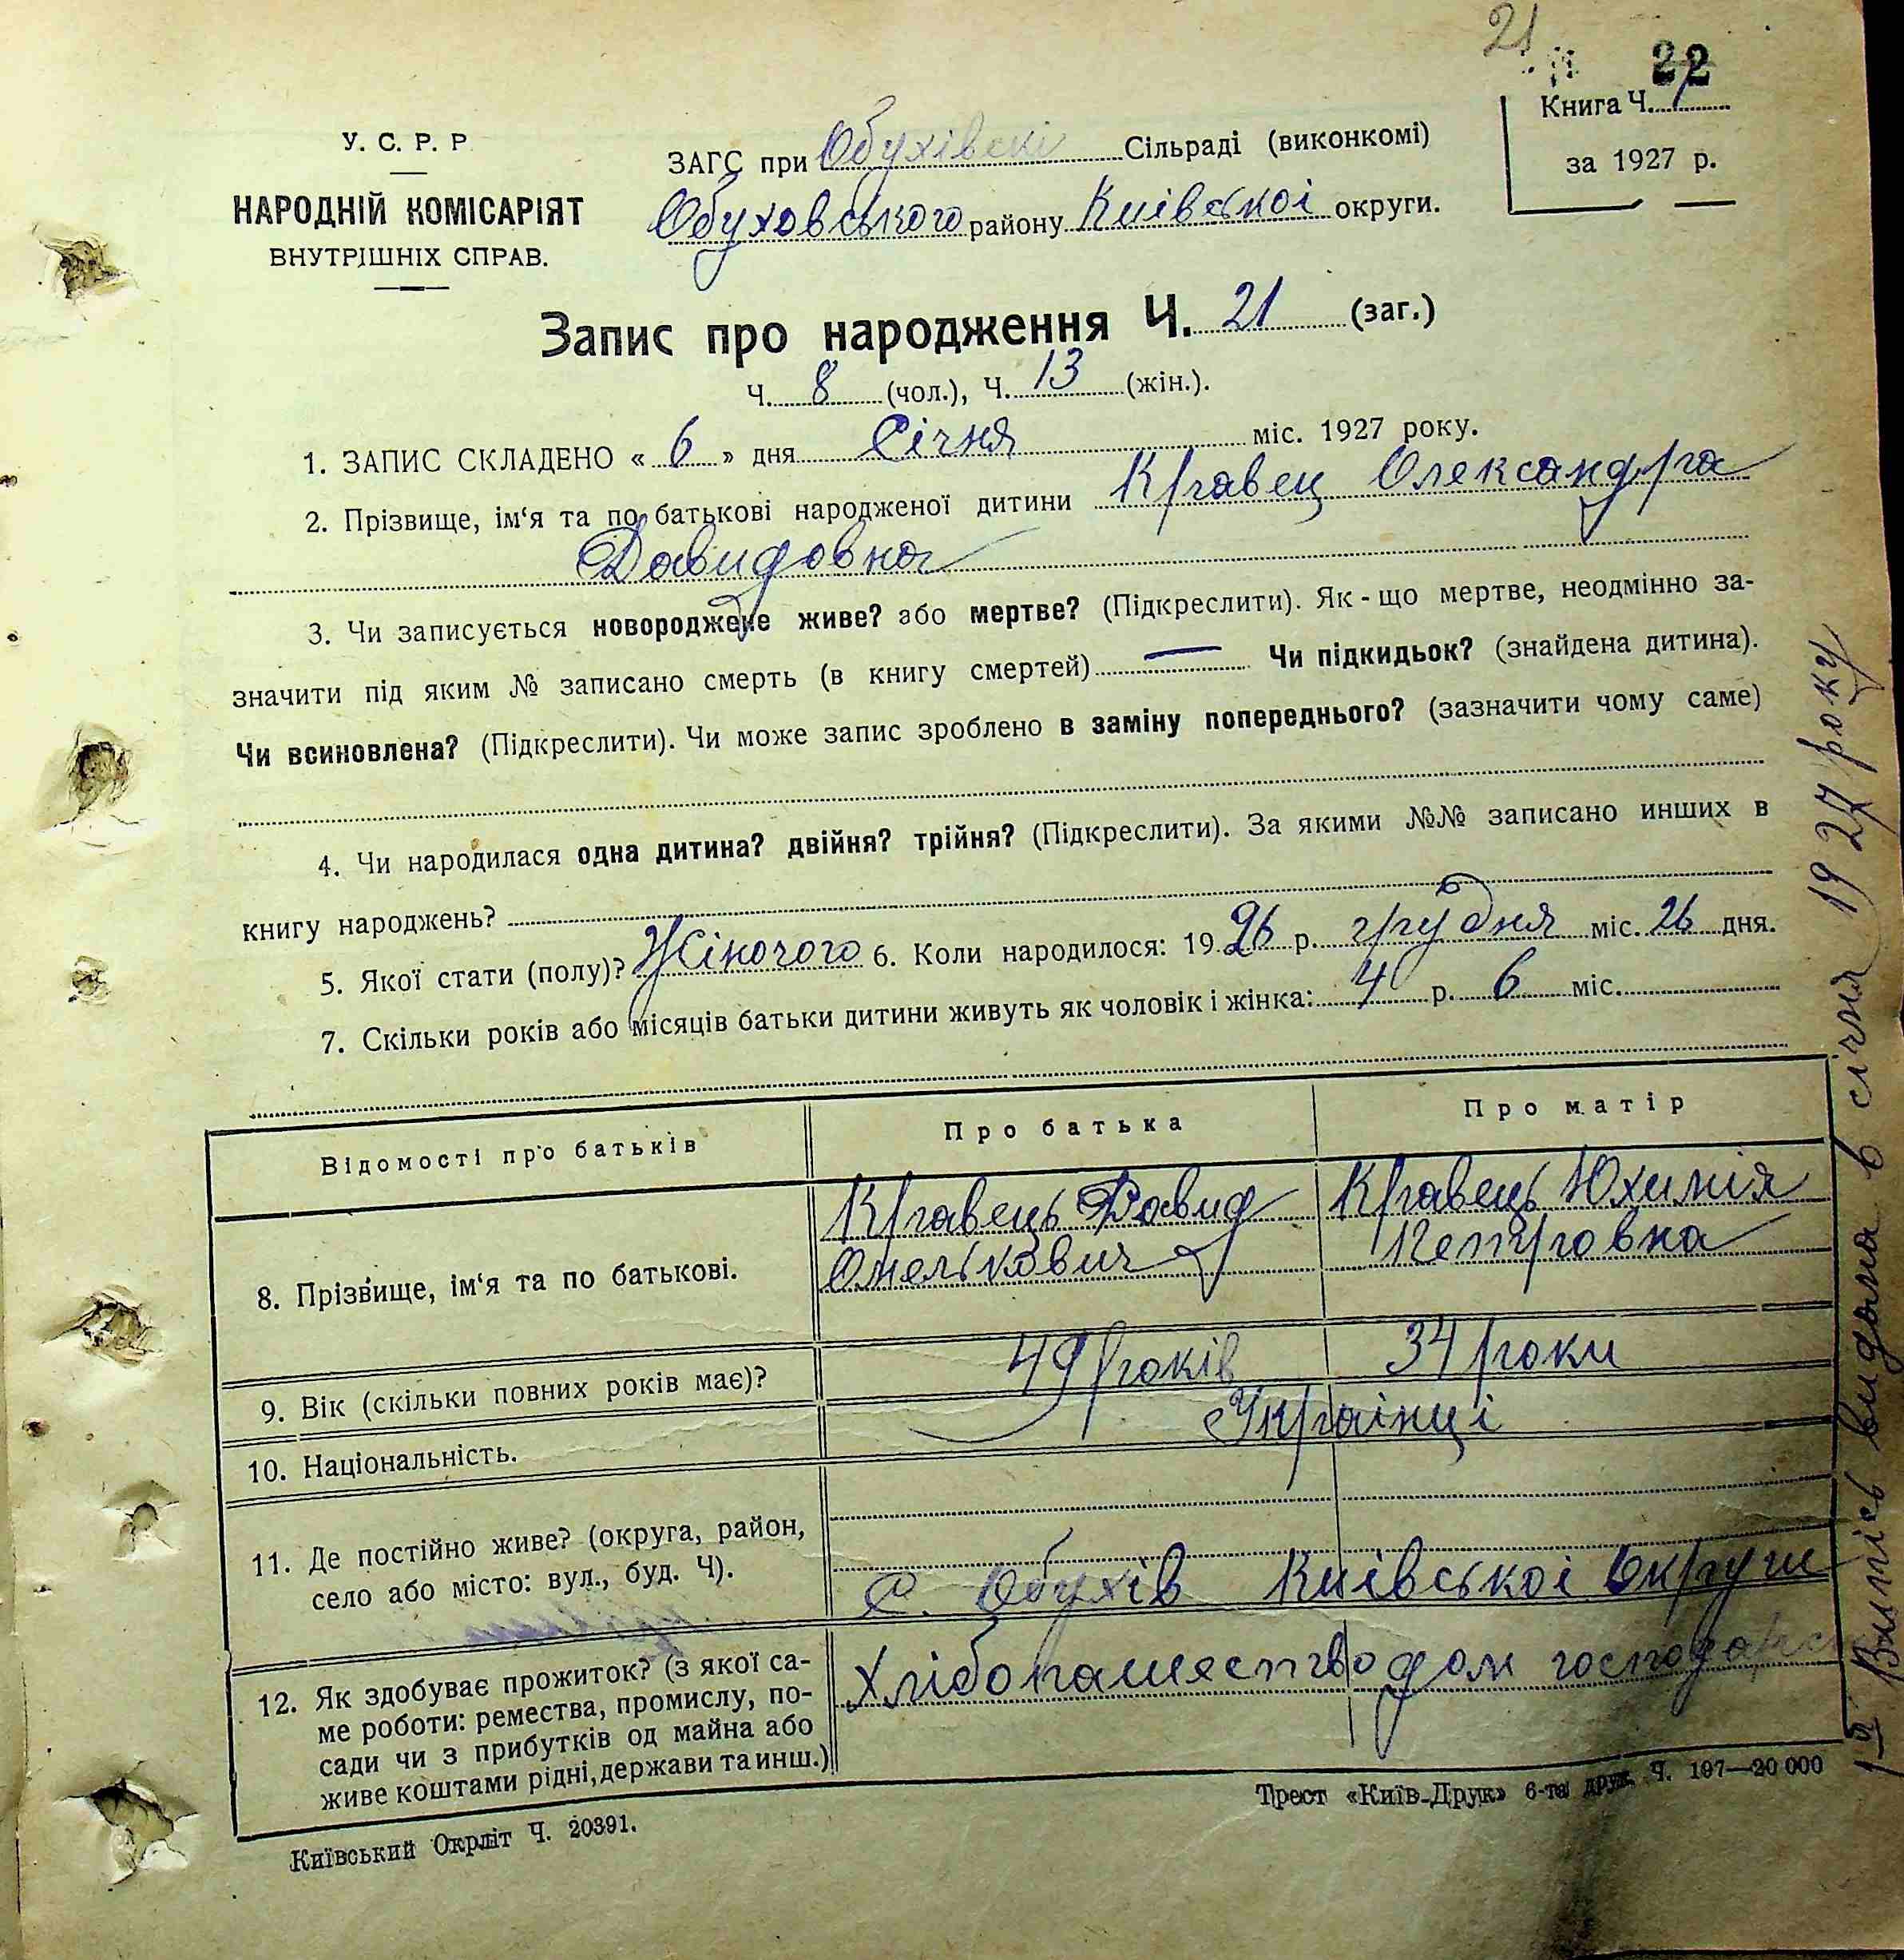 21
22
У. С. Р. Р.
НАРОДНІЙ КОМІСАРІЯТ
ВНУТРІШНІХ СПРАВ.
ЗАГС при Обухівскі Сільраді (виконкомі)
Обуховського району Київської округи.
Книга Ч. 1
за 1927 р.
Запис про народження Ч. 21 (заг.)
Ч. 8 (чол.), Ч. 13 (жін.).
1. ЗАПИС СКЛАДЕНО « 6 » дня Січня міс. 1927 року.
2. Прізвище, ім‘я та по батькові народженої дитини Кравец Олександра
Давидовна
3. Чи записується новороджене живе? або мертве? (Підкреслити). Як-що мертве, неодмінно за-
значити під яким № записано смерть (в книгу смертей) — Чи підкидьок? (знайдена дитина).
Чи всиновлена? (Підкреслити). Чи може запис зроблено в заміну попереднього? (зазначити чому саме)
4. Чи народилася одна дитина? двійня? трійня? (Підкреслити). За якими №№ записано инших в
книгу народжень?
5. Якої стати (полу)? Жіночого 6. Коли народилося: 1926 р. грудня міс. 26 дня.
7. Скільки років або місяців батьки дитини живуть як чоловік і жінка: 4 р. 6 міс.
Відомості про батьків
Про батька
Про матір
8. Прізвище, ім‘я та по батькові.
Кравець Давид
Омелькович
Кравець Юхимія
Петровна
9. Вік (скільки повних років має)?
49 років
34 роки
10. Національність.
Українці
11. Де постійно живе? (округа, район,
село або місто: вул., буд. Ч).
С. Обухів Київської Округи
12. Як здобуває прожиток? (з якої са-
ме роботи: ремества, промислу, по-
сади чи з прибутків од майна або
живе коштами рідні, держави та инш.)
Хлібопашество
дом господарс
Київський Окрліт Ч. 20391.
Трест «Київ-Друк» 6-та друк. Ч. 197—20 000
1й Випісь видана в січня 1927 року